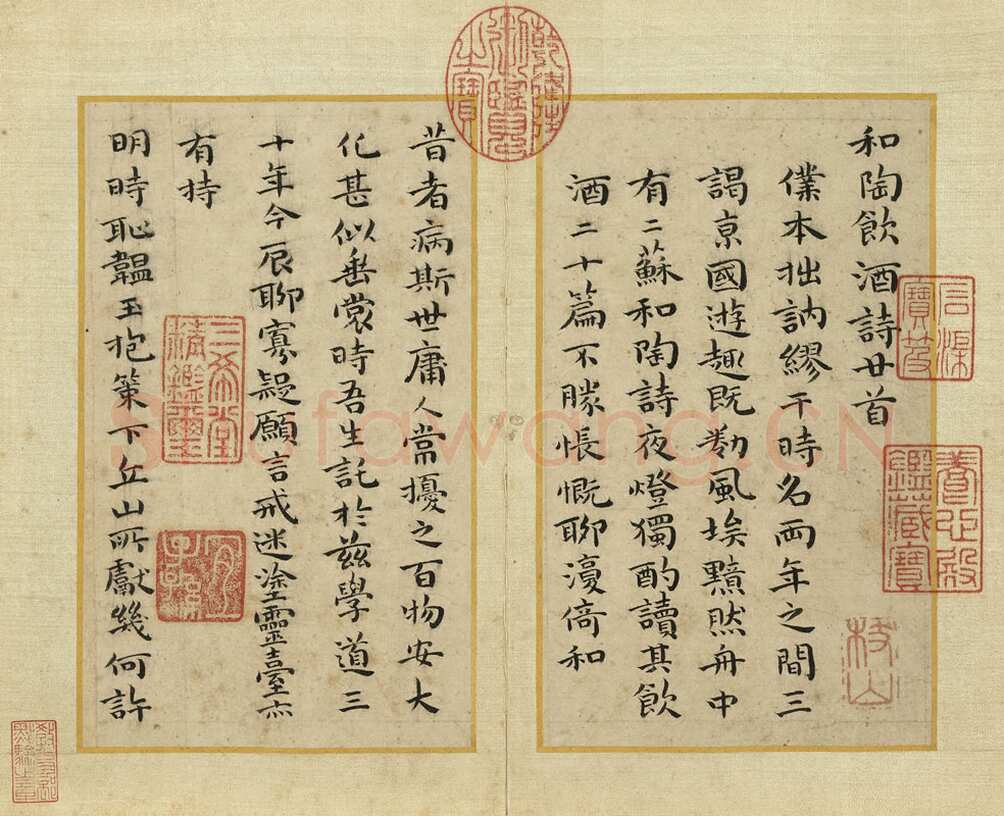 和陶飲酒詩廿首
僕本拙訥繆干時名兩年之間三
謁京國遊趣既勌風埃黯然舟中
有二蘇和陶詩夜燈獨酌讀其飲
酒二十篇不勝悵慨聊復倚和
昔者病斯世庸人常擾之百物安大
化甚似垂裳時吾生託於茲學道三
十年今辰聊寡疑願言戒迷塗靈臺亦
有持
明時恥韞玉抱策下丘山所獻幾何許
乾隆御覽之寶
石渠寶笈
養心殿鑑藏寶
枝山
三希堂精鑑璽
宜子孫